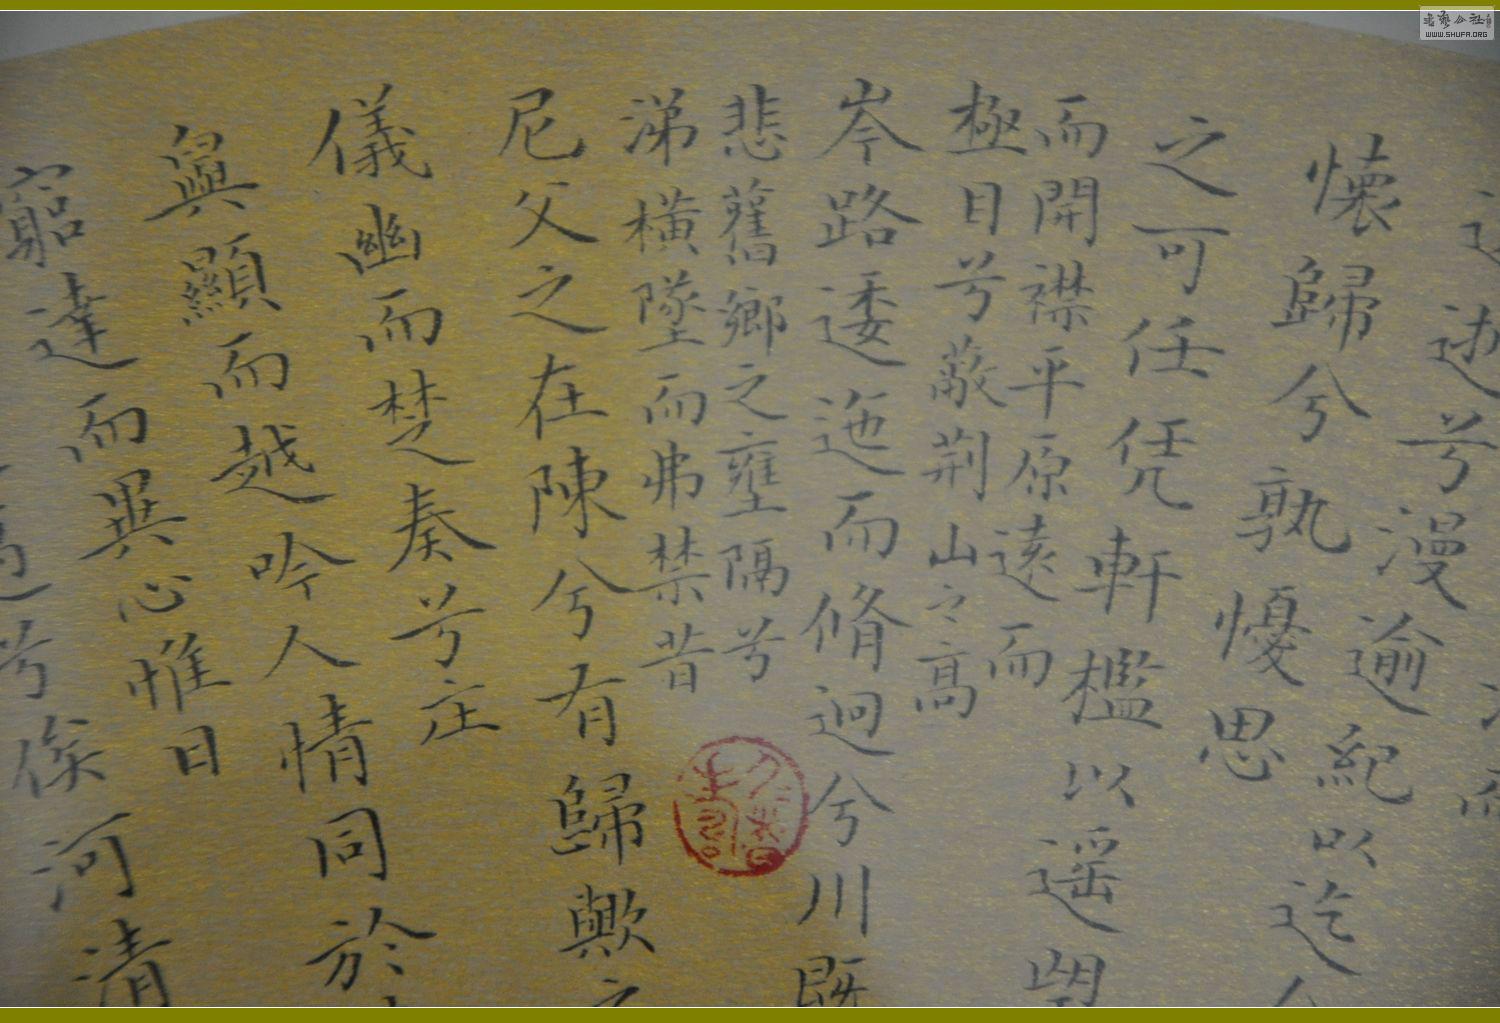 逝兮漫逾紀以迄
懷歸兮孰懮思
之可任凭軒檻以遥望
而開襟平原遠而
極目兮蔽荆山之高
岑路逶迤而脩迥兮川既
悲舊鄉之壅隔兮
涕橫墜而弗禁昔
尼父之在陳兮有歸歟之
儀幽而楚奏兮庄
舄顯而越吟人情同於
窮達而異心惟日
邁兮俟河清
書藝公社
WWW.SHUFA.ORG